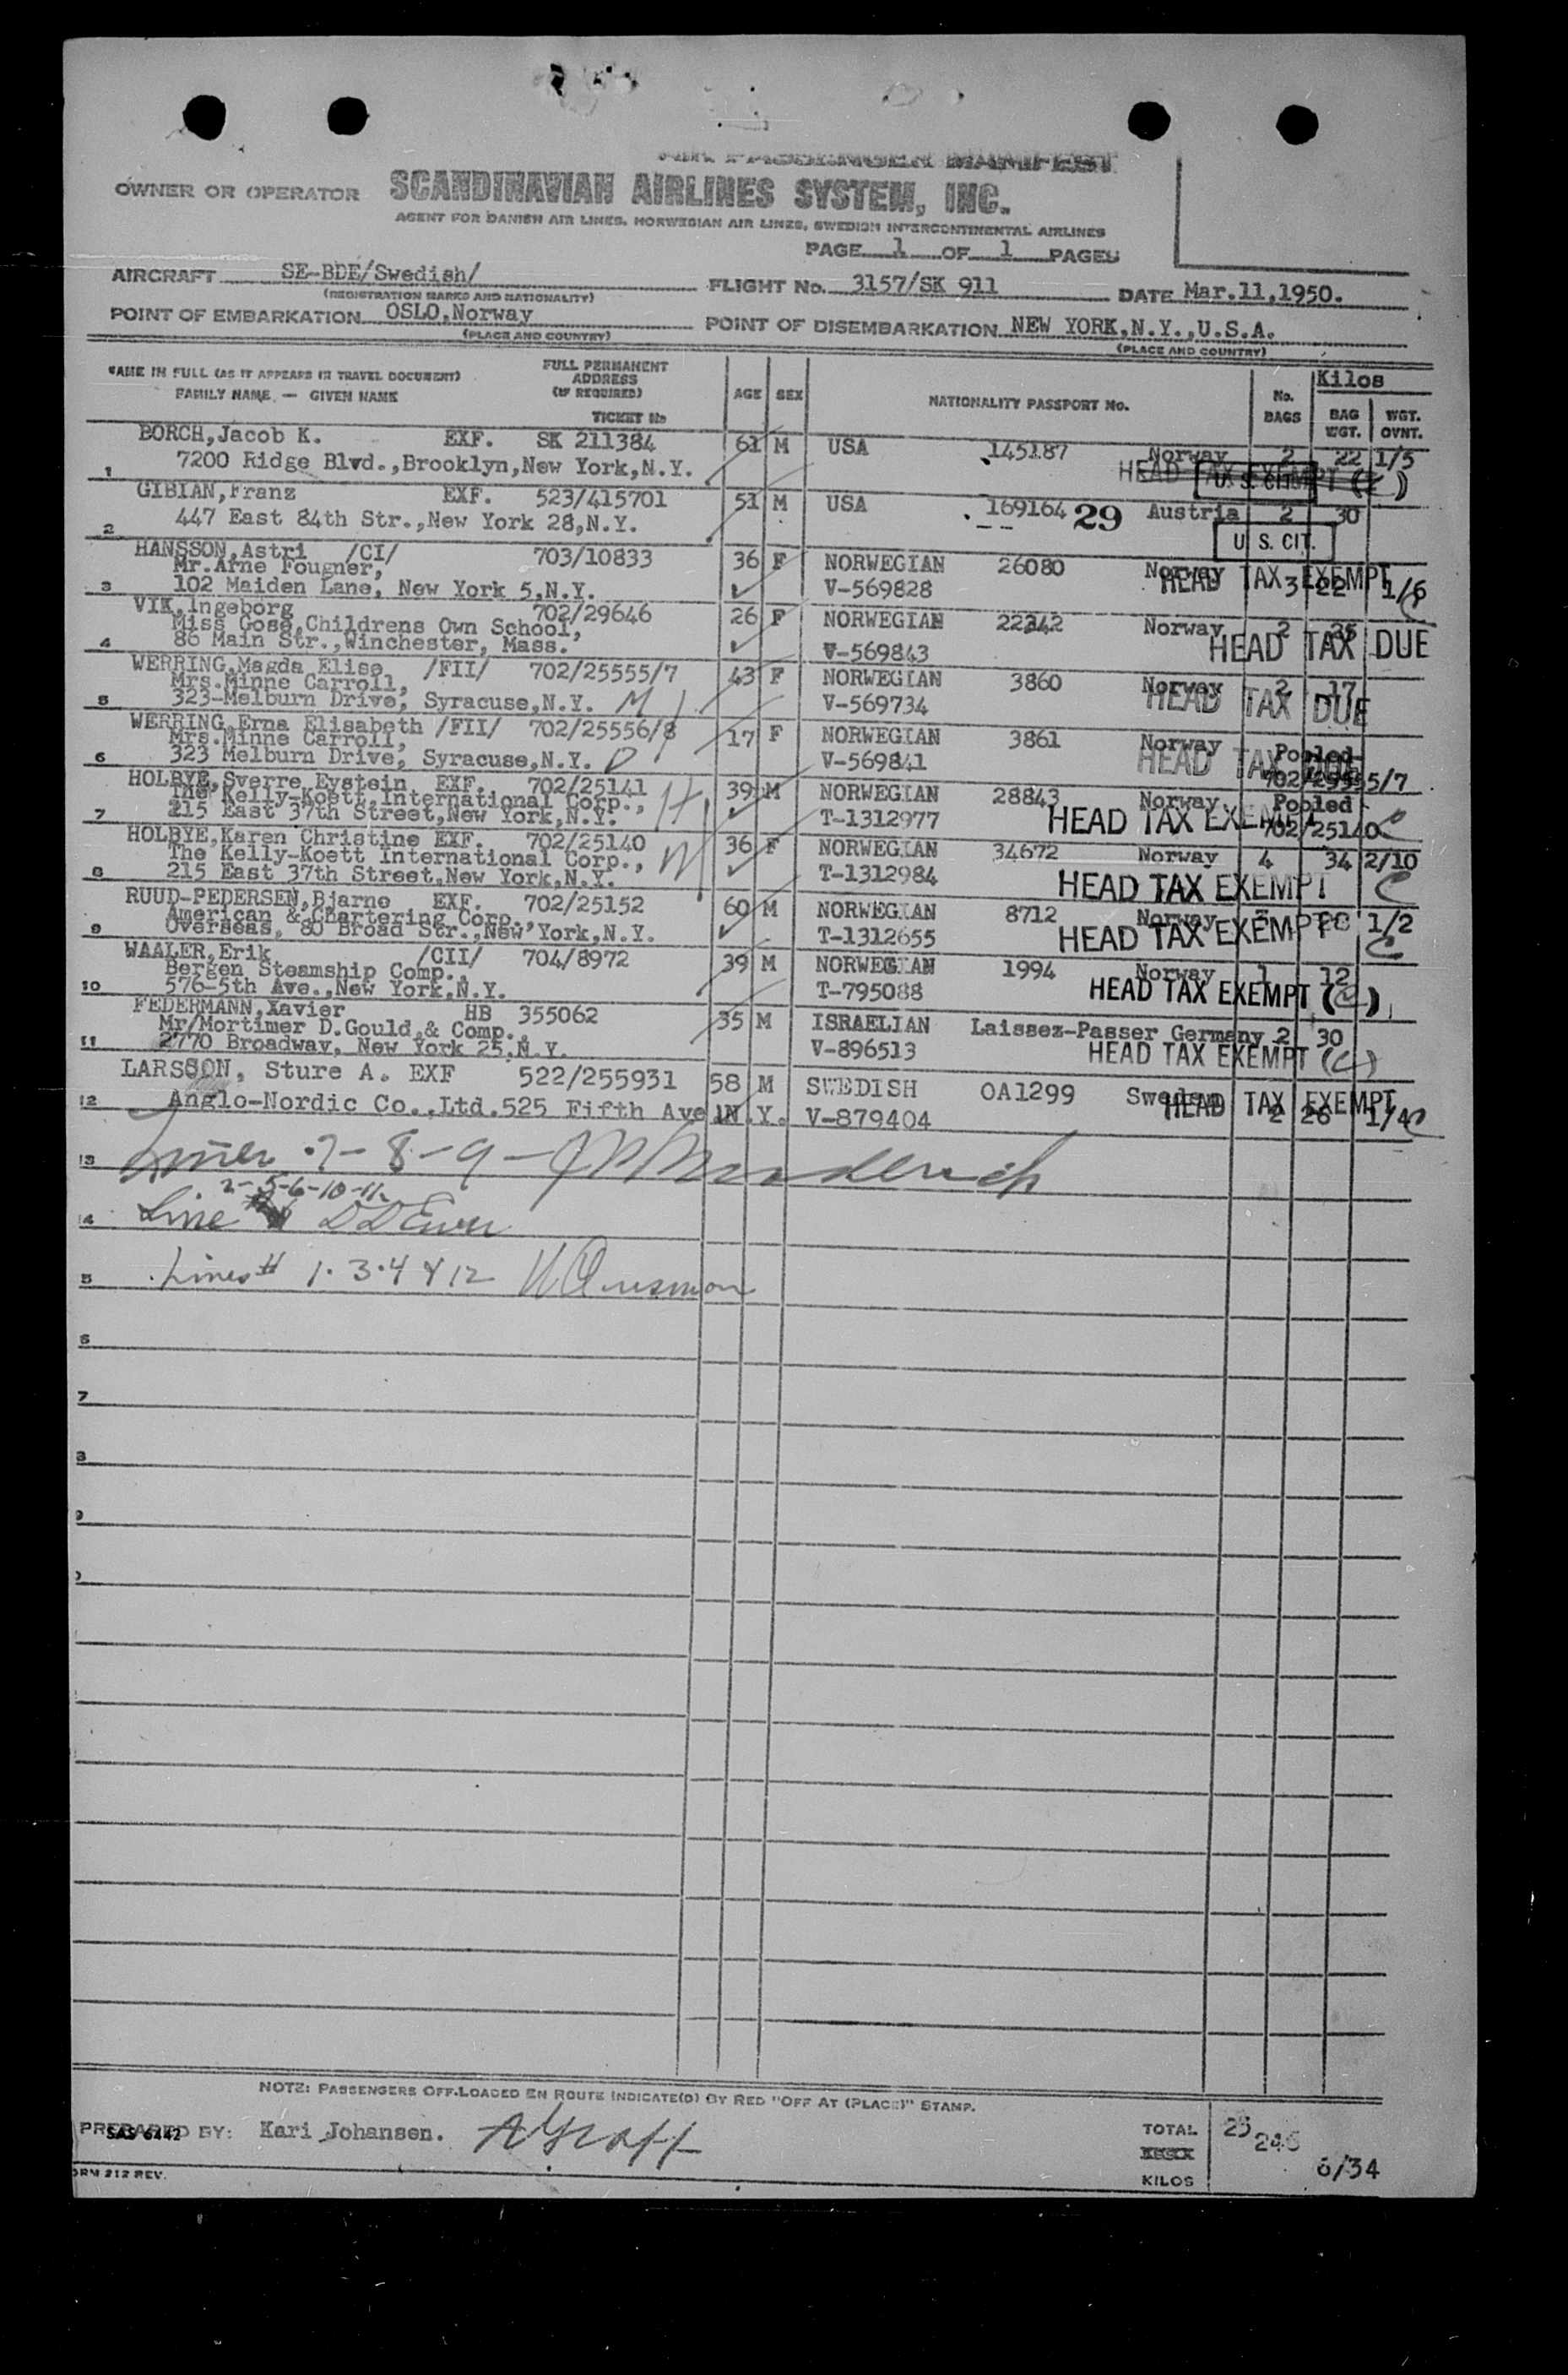 AIR PASSENGER MANIFEST
OWNER OR OPERATOR SCANDINAVIAN AIRLINES SYSTEM, INC.
AGENT FOR DANISH AIR LINES, NORWEGIAN AIR LINES, SWEDISH INTERCONTINENTAL AIRLINES
PAGE 1 OF 1 PAGES
AIRCRAFT SE-BDE/Swedish/ FLIGHT No. 3157/SK 911 DATE Mar.11,1950.
(REGISTRATION MARKS AND NATIONALITY)
POINT OF EMBARKATION OSLO,Norway POINT OF DISEMBARKATION NEW YORK,N.Y.,U.S.A.
(PLACE AND COUNTRY) (PLACE AND COUNTRY)
NAME IN FULL (AS IT APPEARS IN TRAVEL DOCUMENT) FULL PERMANENT ADDRESS (IF REQUIRED) AGE SEX NATIONALITY PASSPORT No. No. BAGS Kilos
FAMILY NAME — GIVEN NAME TICKET No BAG WGT. WGT. OVNT.
BORCH,Jacob K. EXF. SK 211384 61 M USA 145187 Norway 2 22 1/5
1 7200 Ridge Blvd.,Brooklyn,New York,N.Y. HEAD TAX EXEMPT U. S. CIT.
GIBIAN,Franz EXF. 523/415701 51 M USA 169164 29 Austria 2 30
2 447 East 84th Str.,New York 28,N.Y. U. S. CIT.
HANSSON,Astri /CI/ 703/10833 36 F NORWEGIAN 26080 Norway 3 22 1/6
Mr.Arne Fougner,
3 102 Maiden Lane, New York 5,N.Y. V-569828 HEAD TAX EXEMPT
VIK,Ingeborg 702/29646 26 F NORWEGIAN 22342 Norway 2
Miss Gose,Childrens Own School,
4 86 Main Str.,Winchester, Mass. V-569843 HEAD TAX DUE
WERRING,Magda Elise /FII/ 702/25555/7 43 F NORWEGIAN 3860 Norway 2 17
Mrs.Minne Carroll,
5 323-Melburn Drive, Syracuse,N.Y. M V-569734 HEAD TAX DUE
WERRING,Erna Elisabeth /FII/ 702/25556/8 17 F NORWEGIAN 3861 Norway Pooled
Mrs.Minne Carroll,
6 323 Melburn Drive, Syracuse,N.Y. D V-569841 HEAD TAX
HOLBYE,Sverre Eystein EXF. 702/25141 39 M NORWEGIAN 28843 Norway Pooled
The Kelly-Koett International Corp., H
7 215 East 37th Street,New York,N.Y. T-1312977 HEAD TAX EXEMPT 702/25140
HOLBYE,Karen Christine EXF. 702/25140 36 F NORWEGIAN 34672 Norway 4 34 2/10
The Kelly-Koett International Corp., W
8 215 East 37th Street,New York,N.Y. T-1312984 HEAD TAX EXEMPT
RUUD-PEDERSEN,Bjarne EXF. 702/25152 60 M NORWEGIAN 8712 Norway 1/2
American & Chartering Corp.,
9 Overseas, 80 Broad Str.,New York,N.Y. T-1312655 HEAD TAX EXEMPT
WAALER,Erik /CII/ 704/8972 39 M NORWEGIAN 1994 Norway 1 12
Bergen Steamship Comp.,
10 576-5th Ave.,New York,N.Y. T-795088 HEAD TAX EXEMPT (C)
FEDERMANN,Xavier HB 355062 35 M ISRAELIAN Laissez-Passer Germany 2 30
Mr/Mortimer D.Gould,& Comp.,
11 2770 Broadway, New York 25,N.Y. V-896513 HEAD TAX EXEMPT (C)
LARSSON, Sture A. EXF 522/255931 58 M SWEDISH OA1299 Sweden
12 Anglo-Nordic Co.,Ltd.525 Fifth Ave.N.Y. V-879404 HEAD TAX EXEMPT 2 26 1/4
13 Lines 7-8-9-
2-5-6-10-11
14 Line
15 Lines # 1.3.4 & 12
NOTE: PASSENGERS OFF-LOADED EN ROUTE INDICATE(D) BY RED "OFF AT (PLACE)" STAMP.
PREPARED BY: Kari Johansen. TOTAL 25 246
SAS 6442
KILOS 6/34
FORM 212 REV.